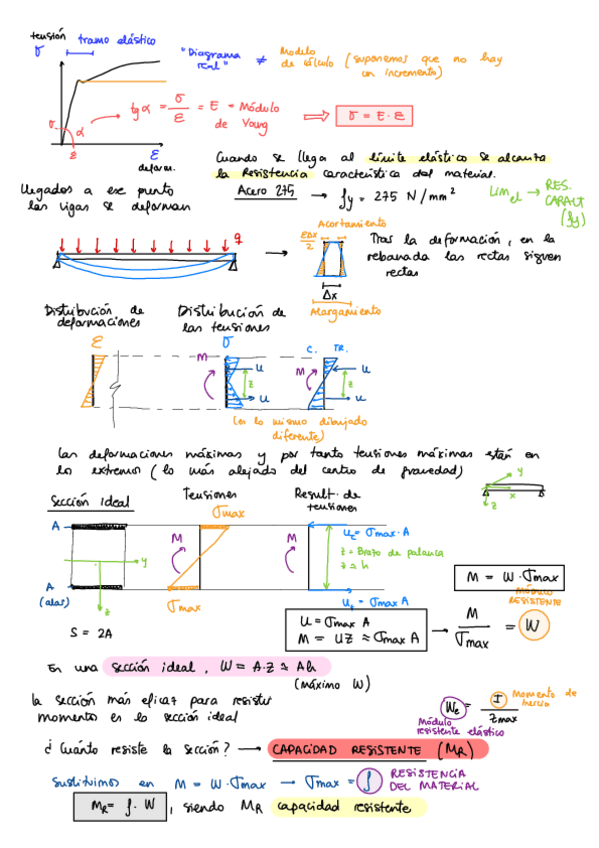 tensión
σ
tramo elástico
"Diagrama real" ≠ Modelo de cálculo (suponemos que no hay un incremento)
tg α = σ/ε = E = Módulo de Young ⇒ σ = E · ε
σ
α
ε
ε
deform.
Cuando se llega al límite elástico se alcanza
la Resistencia característica del material.
Llegados a ese punto
las vigas se deforman
Acero 275 → fy = 275 N/mm²
Lim el → RES. CARACT (fy)
q
Acortamiento
εDx/2
Δx
Alargamiento
Tras la deformación, en la
rebanada las rectas siguen
rectas
Distribución de
deformaciones
Distribución de
las tensiones
ε
σ
C. TR.
M
U
z
U
M
U
z
U
(es lo mismo dibujado
diferente)
Las deformaciones máximas y por tanto tensiones máximas están en
los extremos (lo más alejado del centro de gravedad)
y
x
z
Sección ideal
Tensiones
Result. de
tensiones
σmax
A
y
z
A
(alas)
M
σmax
M
Uc = σmax · A
z = Brazo de palanca
z ≈ h
Ut = σmax A
S = 2A
U = σmax A
M = UZ ≈ σmax A
M = W · σmax
M/σmax = W
MÓDULO
RESISTENTE
En una sección ideal, W = A·z ≈ Ah
(máximo W)
la sección más eficaz para resistir
momento es la sección ideal
We = I/zmax
Momento de
Inercia
Módulo
resistente elástico
¿Cuánto resiste la sección? → CAPACIDAD RESISTENTE (MR)
Sustituimos en M = W · σmax → σmax = f
RESISTENCIA
DEL MATERIAL
MR = f · W, siendo MR capacidad resistente